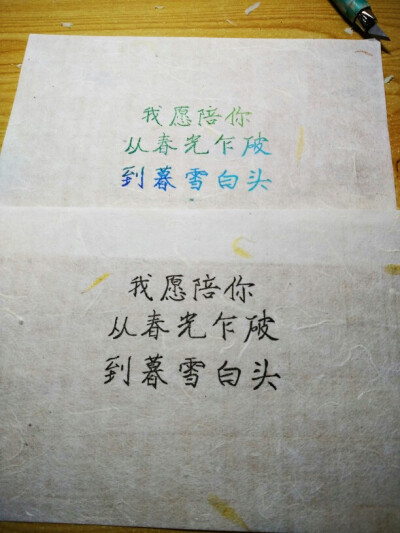 我愿陪你
从春光乍破
到暮雪白头
我愿陪你
从春光乍破
到暮雪白头